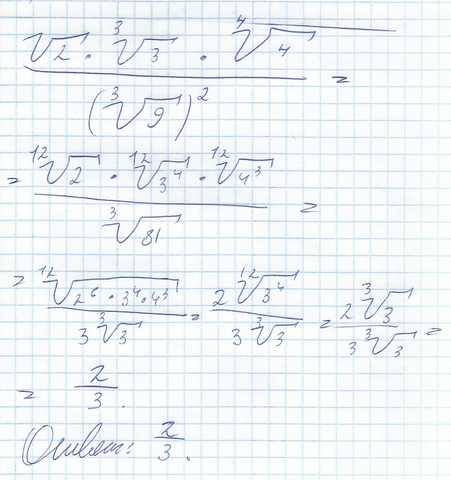 (√2 · ∛3 · ∜4) / (∛9)² =
= (¹²√2 · ¹²√3⁴ · ¹²√4³) / ∛81 =
= ¹²√(2⁶ · 3⁴ · 4³) / (3∛3) = 2 ¹²√3⁴ / (3∛3) = 2∛3 / (3∛3) =
= 2/3.
Ответ: 2/3.